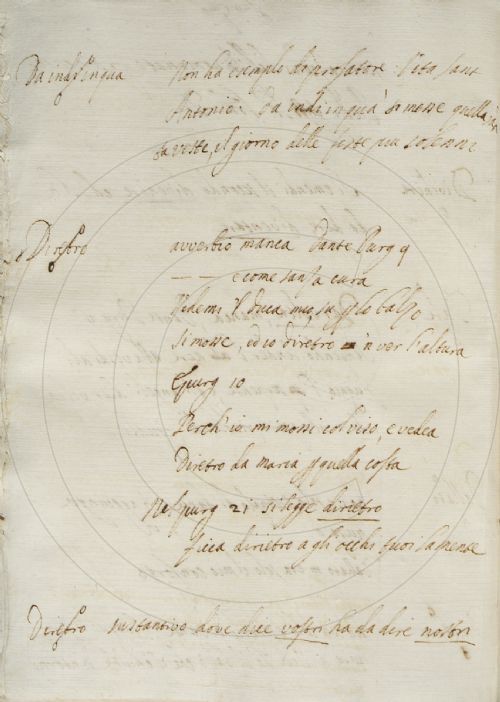 Da indi in qua non ha esempli di prosatore. Vita Sant
Antonio. Da indi in quà si messe quella
veste, il giorno delle feste piu solenni
Diretro avverbio manca Dante Purg 9
e come sanza cura
Vedemi il Duca mio, su p lo balzo
Si mosse, ed io diretro in ver l'altura
E purg 10
Perch' io mi mossi col viso, e vedea
Diretro da maria p quella costa
Nel purg 21 si legge dirietro
ficca dirietro a gli occhi tuoi la mente
Diretro sustantivo dove dice vostri ha da dire nostri